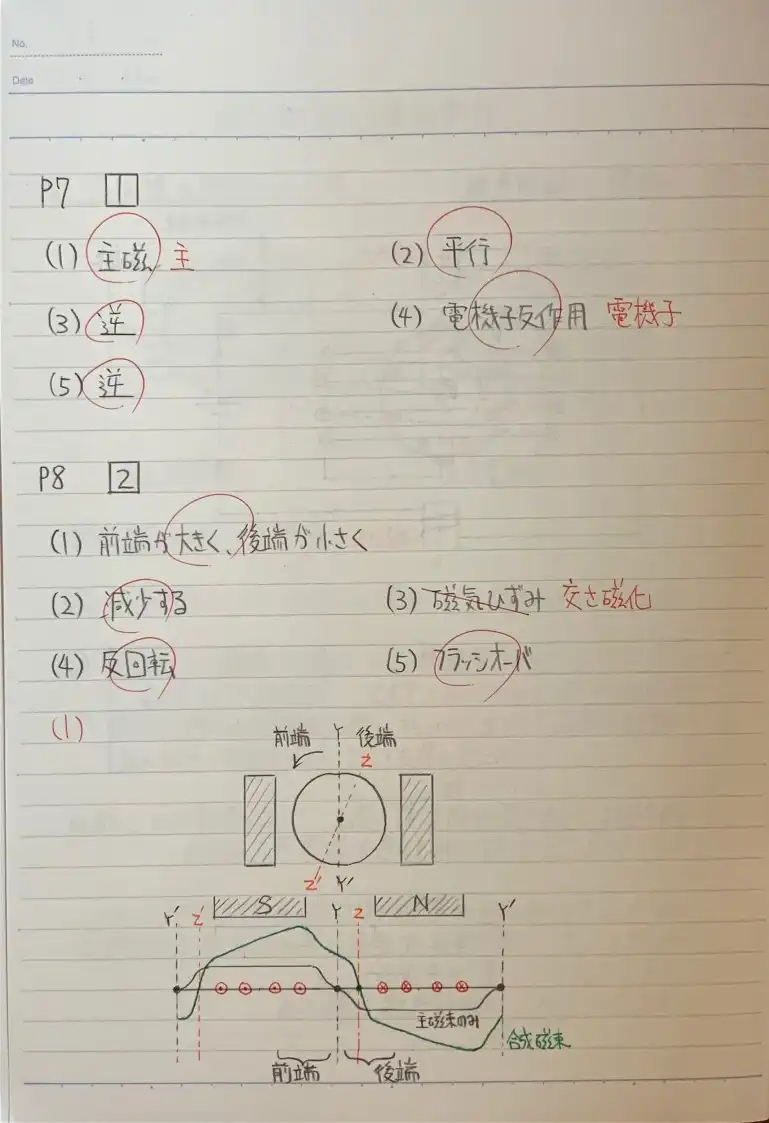 No.
Date
P7 1
(1) 主磁 主 (2) 平行
(3) 逆 (4) 電機子反作用 電機子
(5) 逆
P8 2
(1) 前端が大きく、後端が小さく
(2) 減少する (3) 磁気ひずみ 交さ磁化
(4) 反回転 (5) フラッシオーバ
(1)
前端 Y 後端
Z
Z' Y'
S N
Y' Z' Y Z Y'
主磁束のみ
合成磁束
前端 後端